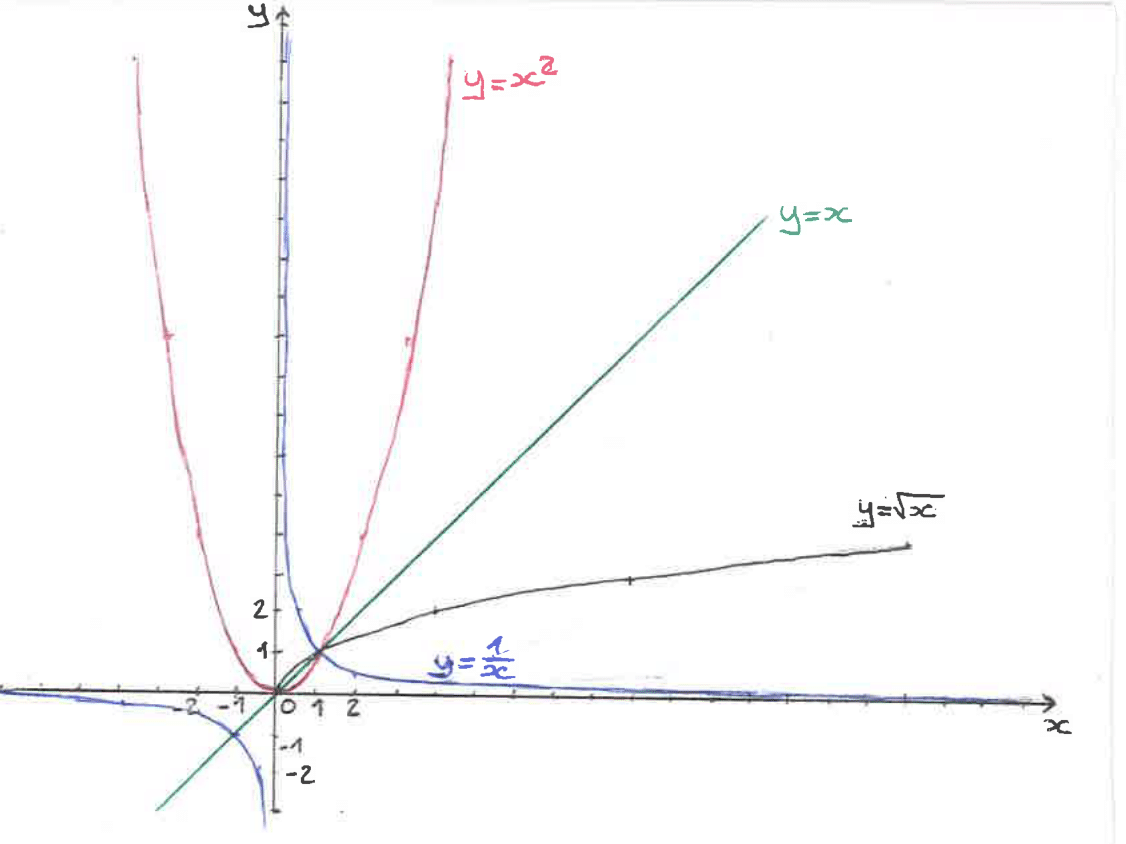 y
y=x²
y=x
y=√x
2
1
y=1/x
-2 -1 0 1 2
x
-1
-2